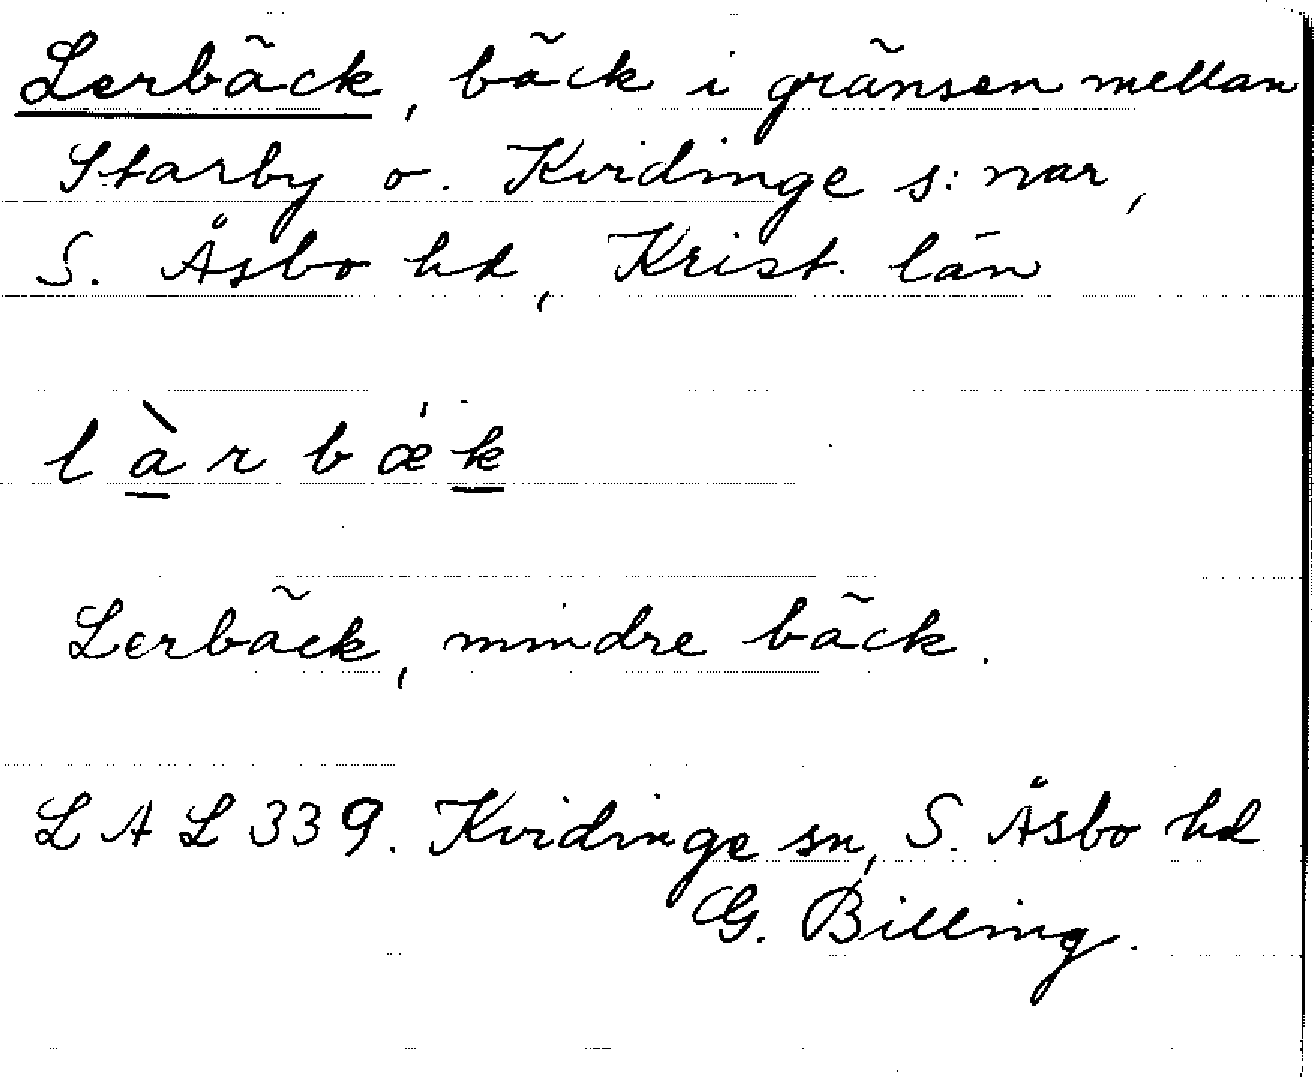 Lerbäck, bäck i gränsen mellan
Starby o. Kvidinge s:nar,
S. Åsbo hd, Krist. län
làrbæ̍k
Lerbäck, mindre bäck.
LAL 339. Kvidinge sn, S. Åsbo hd
G. Billing.